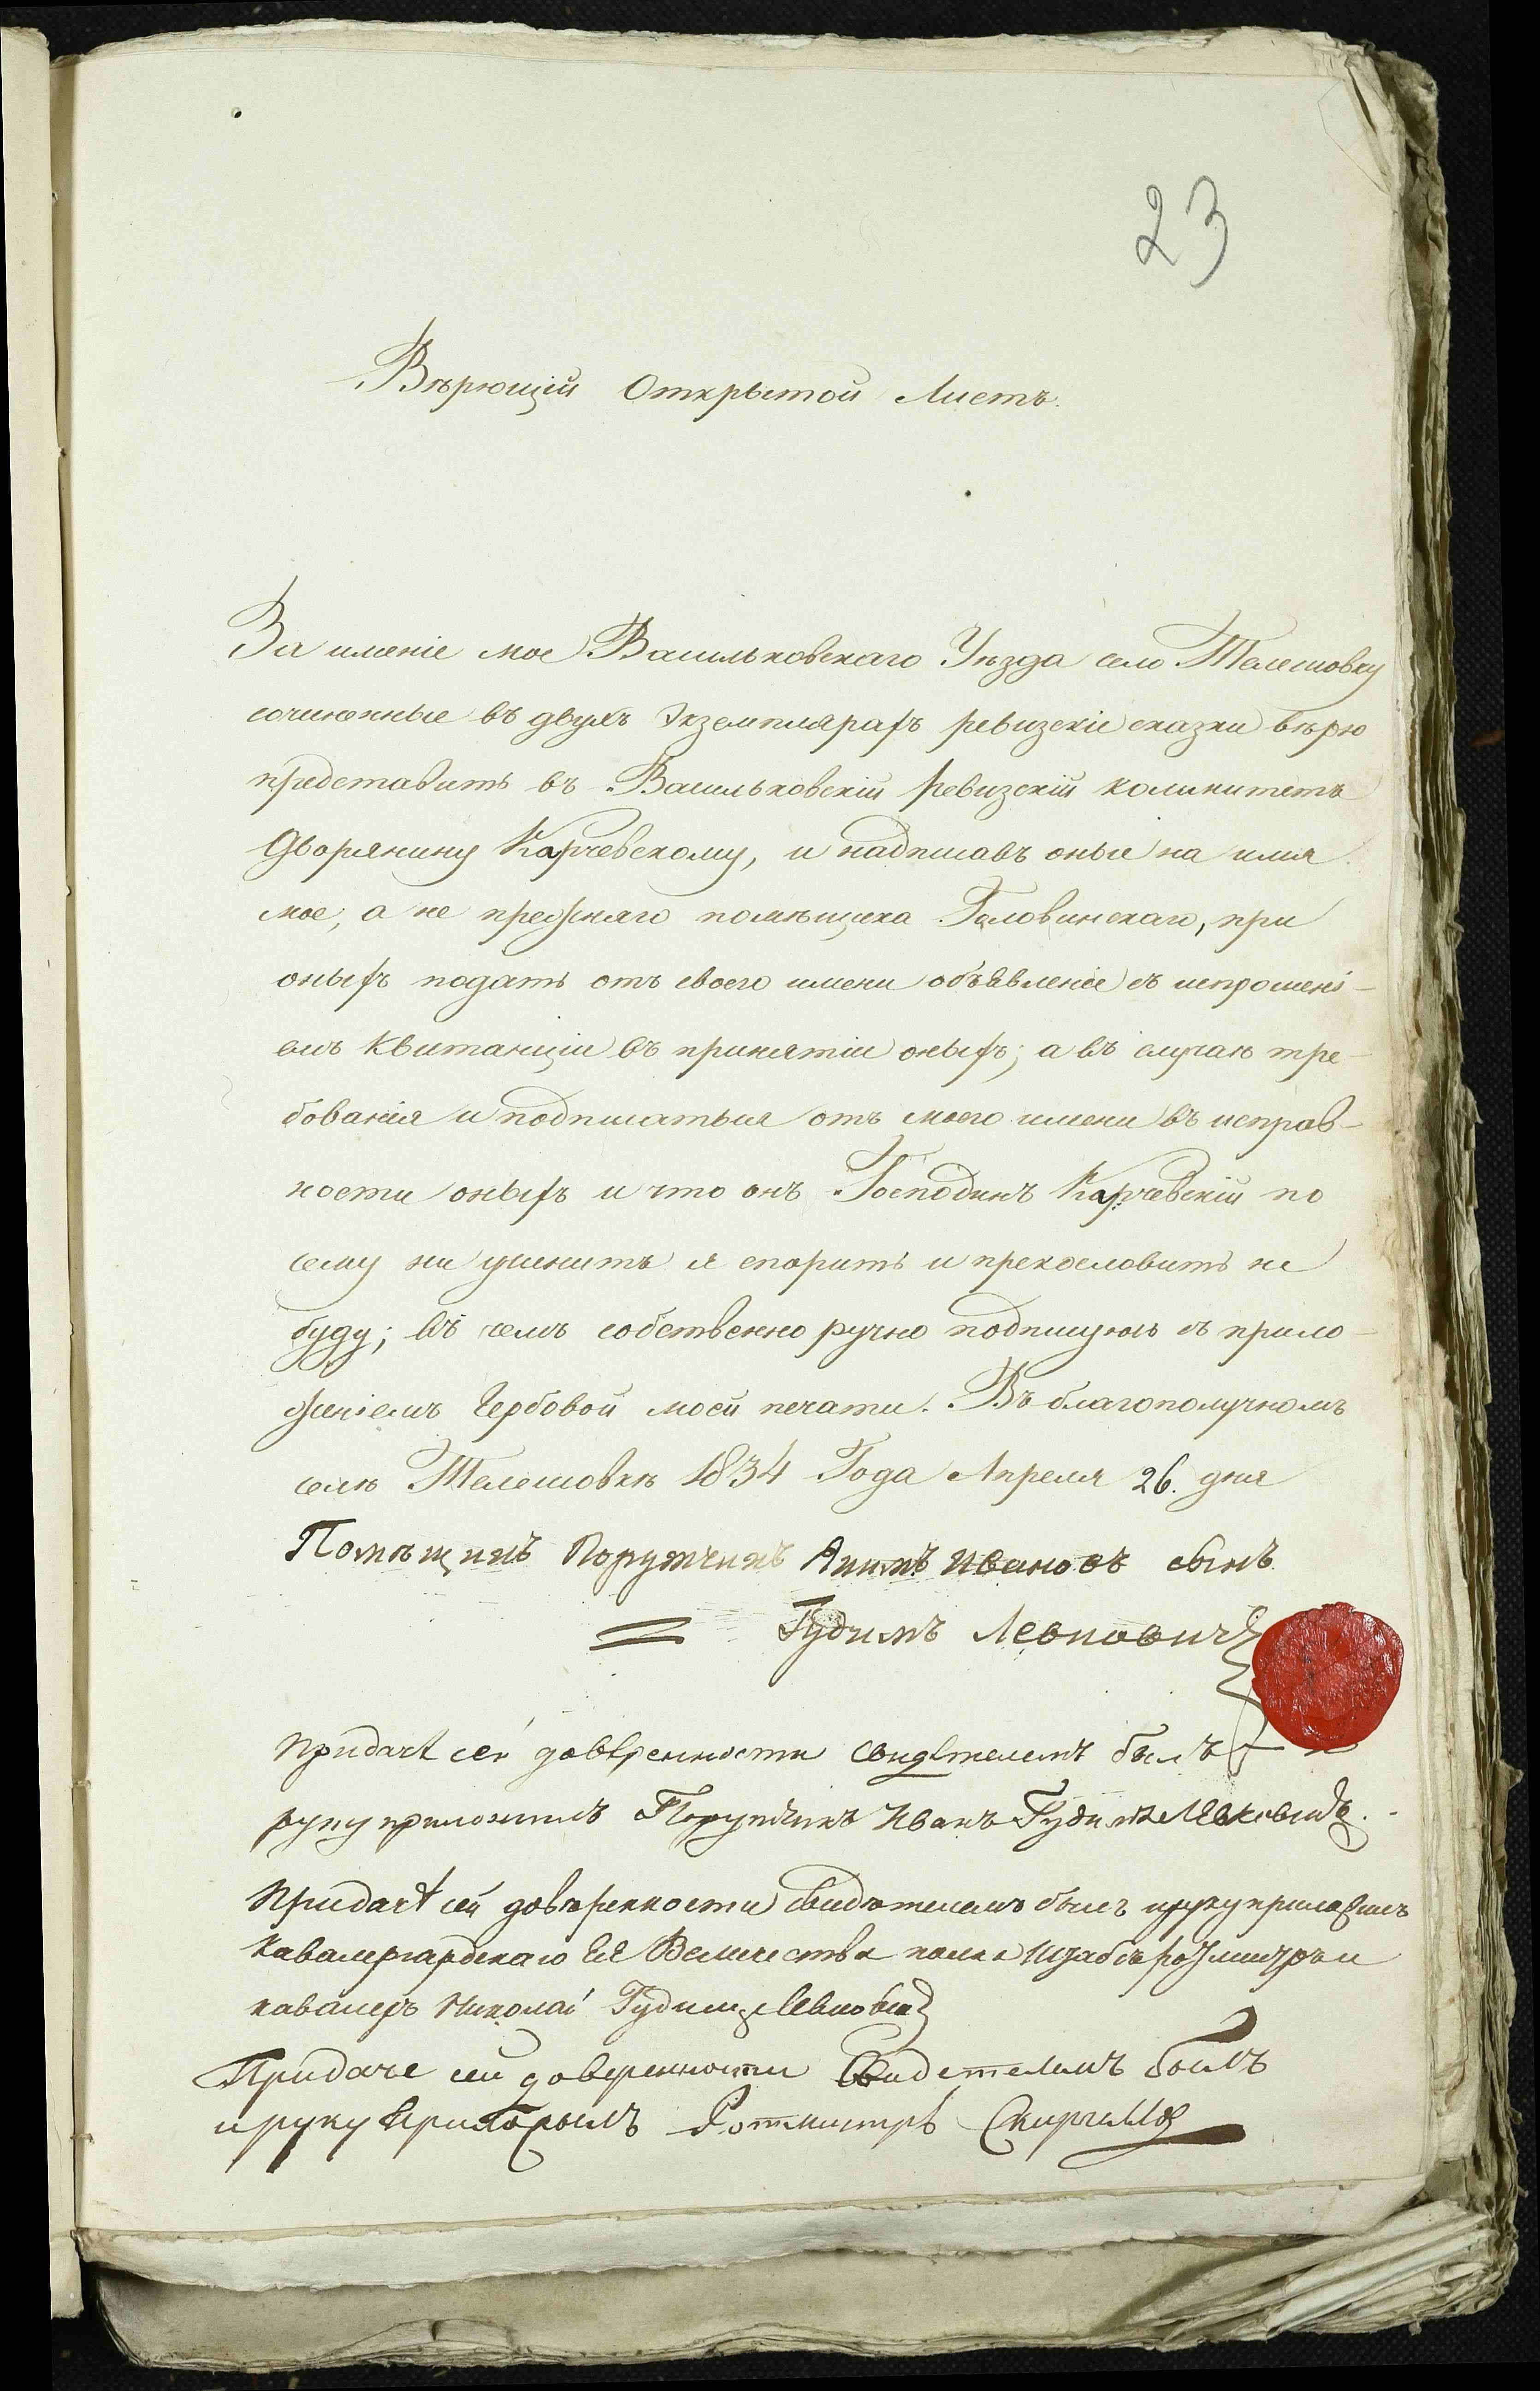 23
Вѣрющій Открытой Листъ.
За именіе мое Васильковскаго Уѣзда село Телешовку
сочиненные въ двухъ Экземплярахъ ревизскіе сказки вѣрю
представить въ Васильковскій ревизскій коммитетъ
Дворянину Карчевскому, и надписавъ оные на имя
мое, а не прежняго помѣщика Головинскаго, при
оныхъ подать отъ своего имени объявленіе съ испрошені-
емъ Квитанціи въ принятіи оныхъ; а въ случаѣ тре-
бованія и подписаться отъ моего имени въ исправ-
ности оныхъ и что онъ Господинъ Карчевскій по
сему ни учинитъ я спорить и прекословить не
буду; въ чемъ собственно ручно подписуюсь съ прило-
женіемъ Гербовой моей печати. Въ благополучномъ
селѣ Телешовкѣ 1834 Года Апреля 26. дня
Помѣщикъ Порутчикъ Якимъ Ивановъ сынъ
= Гудимъ Левковичъ
Придачѣ сей довѣренности свидѣтелемъ былъ и
руку приложилъ Порутчикъ Иванъ Гудимъ Левковичъ.
Придачѣ сей довѣренности свидѣтелемъ былъ и руку приложилъ
Кавалергардскаго ЕЯ Величества полка Штабсъ ротмистръ и
кавалеръ Николай Гудимъ Левковичъ
Придаче сей доверенности Свидетелемъ былъ
и руку приложилъ Ротмистръ